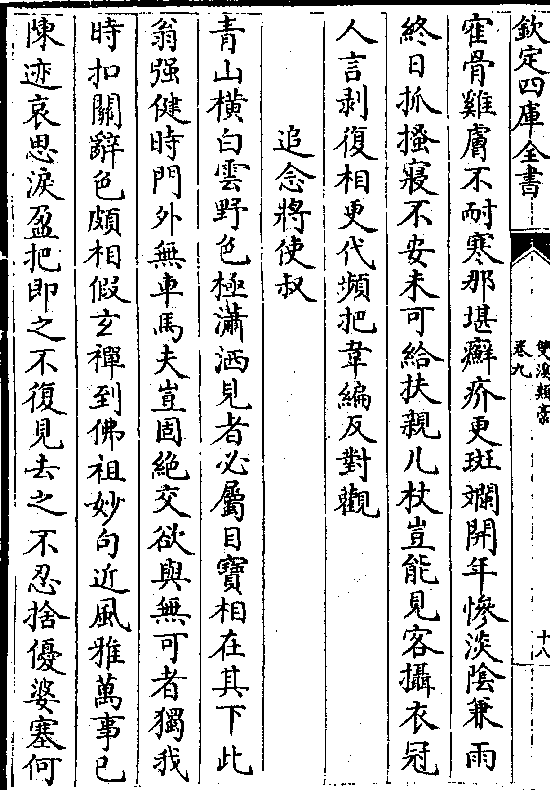 欽定四庫全書
雙溪類藁
卷九
十八
寉骨雞膚不耐寒那堪癬疥更斑斕開年慘淡陰兼雨
終日抓搔寢不安未可給扶親几杖豈能見客攝衣冠
人言剥復相更代頻把韋編反對觀
追念將使叔
青山横白雲野色極瀟洒見者必屬目寶相在其下此
翁强健時門外無車馬夫豈固絶交欲與無可者獨我
時扣關辭色頗相假玄禪到佛祖妙句近風雅萬事已
陳迹哀思淚盈把即之不復見去之不忍捨優婆塞何